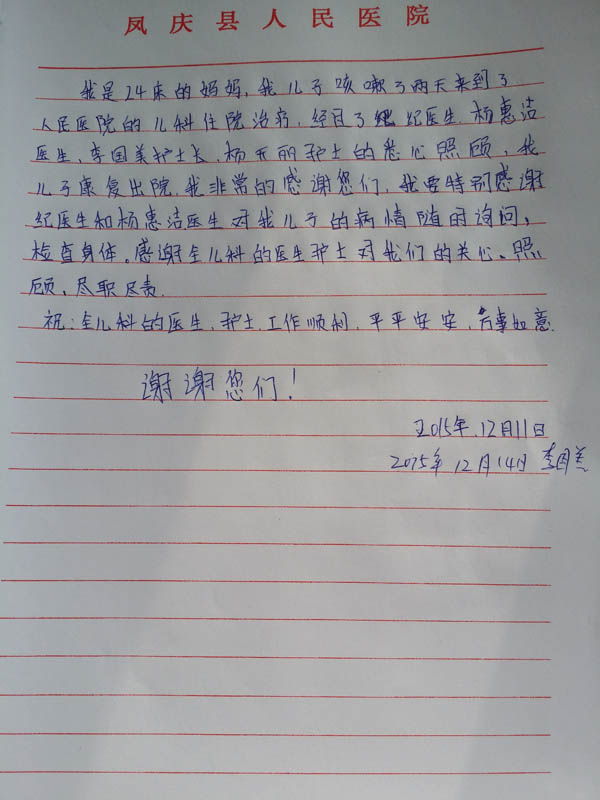 凤庆县人民医院
我是24床的妈妈,我儿子咳嗽了两天来到了
人民医院的儿科住院治疗,经过了纪医生.杨惠洁
医生,李国美护士长,杨天丽护士的悉心照顾,我
儿子康复出院.我非常的感谢您们,我要特别感谢
纪医生和杨惠洁医生对我儿子的病情随时询问,
检查身体。感谢全儿科的医生护士对我们的关心、照
顾、尽职尽责.
祝:全儿科的医生.护士.工作顺利.平平安安,万事如意.
谢谢您们!
2015年.12月11日
2015年12月14日 李国美